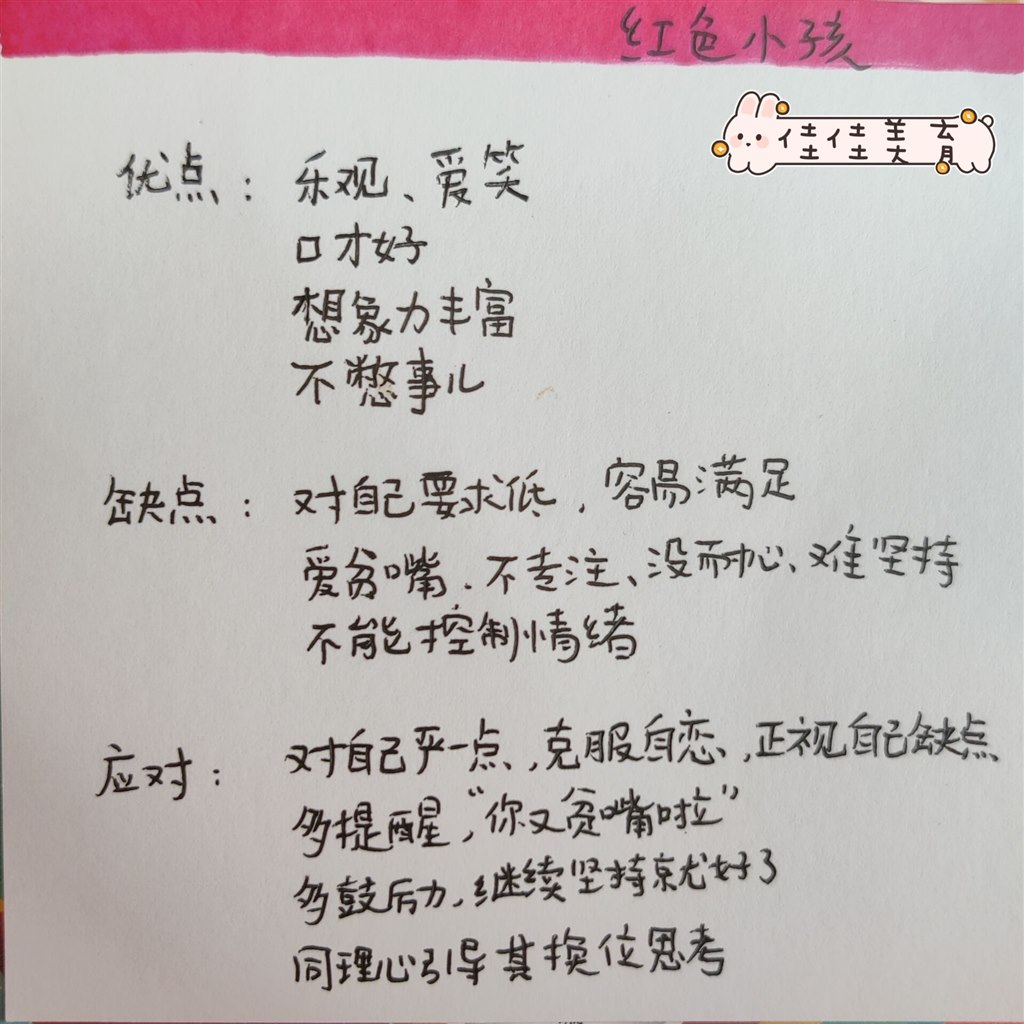 红色小孩
佳佳美育
优点：乐观、爱笑
口才好
想象力丰富
不憋事儿
缺点：对自己要求低，容易满足
爱贫嘴、不专注、没耐心、难坚持
不能控制情绪
应对：对自己严一点，克服自恋，正视自己缺点
多提醒，“你又贫嘴啦”
多鼓励，继续坚持就好了
同理心引导其换位思考